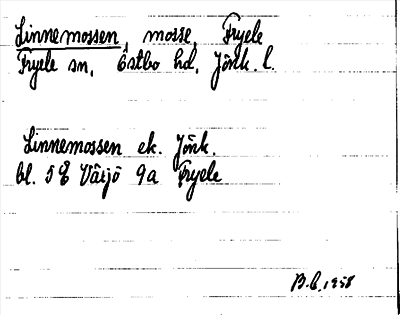 Linnemossen, mosse, Fryele
Fryele sn, Östbo hd, Jönk. l.
Linnemossen ek. Jönk.
bl. 5 E Växjö 9a Fryele
B.C. 1958